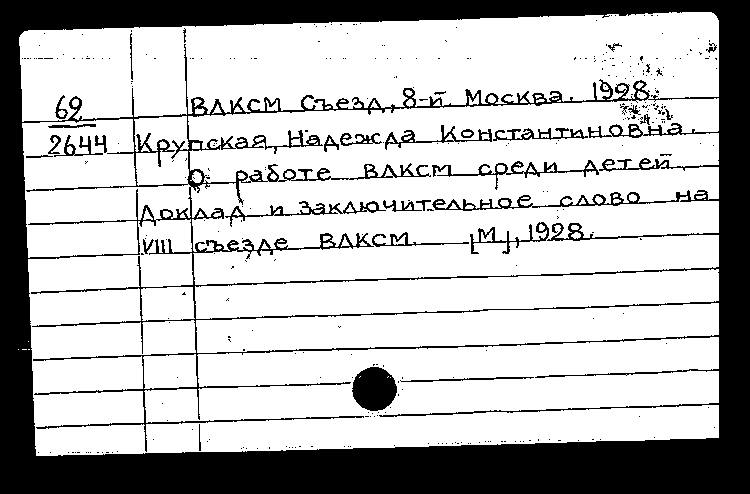 62 ВЛКСМ Съезд, 8-й. Москва. 1928.
2644 Крупская, Надежда Константиновна.
О работе ВЛКСМ среди детей.
Доклад и заключительное слово на
VIII съезде ВЛКСМ. [М], 1928.